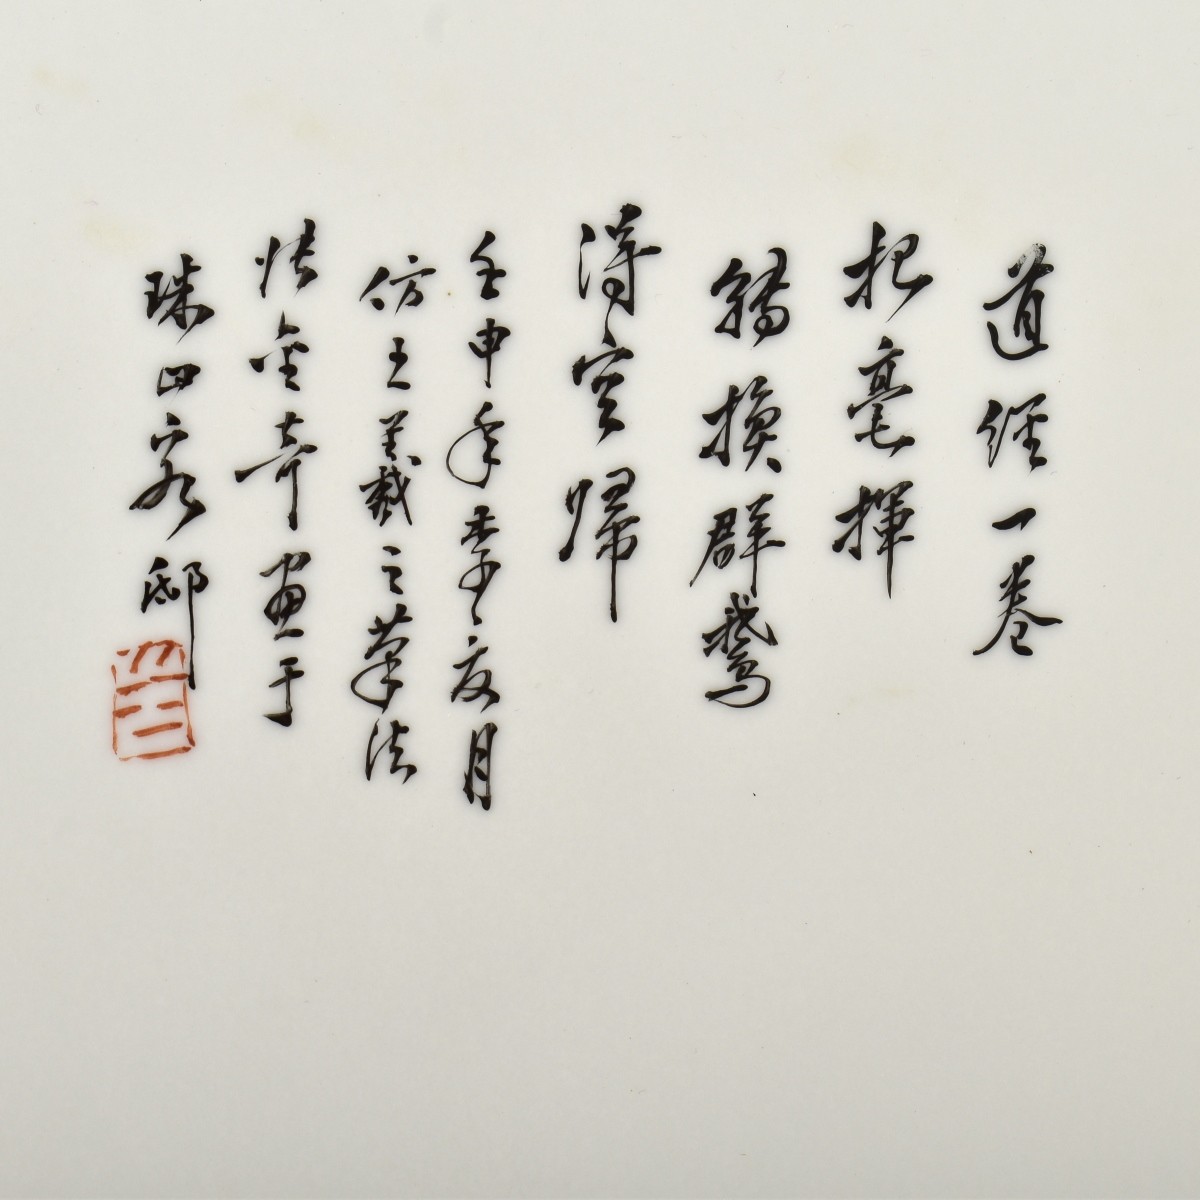 道經一卷
把毫揮
換群鵞
得歸
壬申年季夏月
仿王羲之筆法
張金奇畫于
珠山客邸